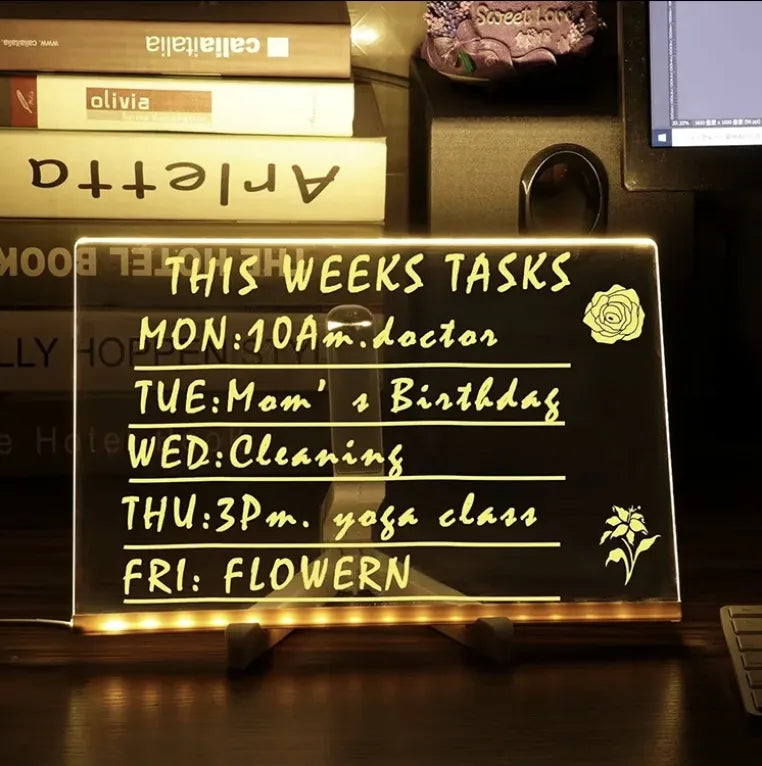 www.caliaitalia
caliaitalia
olivia
Arletta
THE HOTEL BOOK
LLY HOPPEN STYL
e Hote
Sweet Love
THIS WEEKS TASKS
MON:10Am.doctor
TUE:Mom's Birthdag
WED:Cleaning
THU:3Pm. yoga class
FRI: FLOWERN